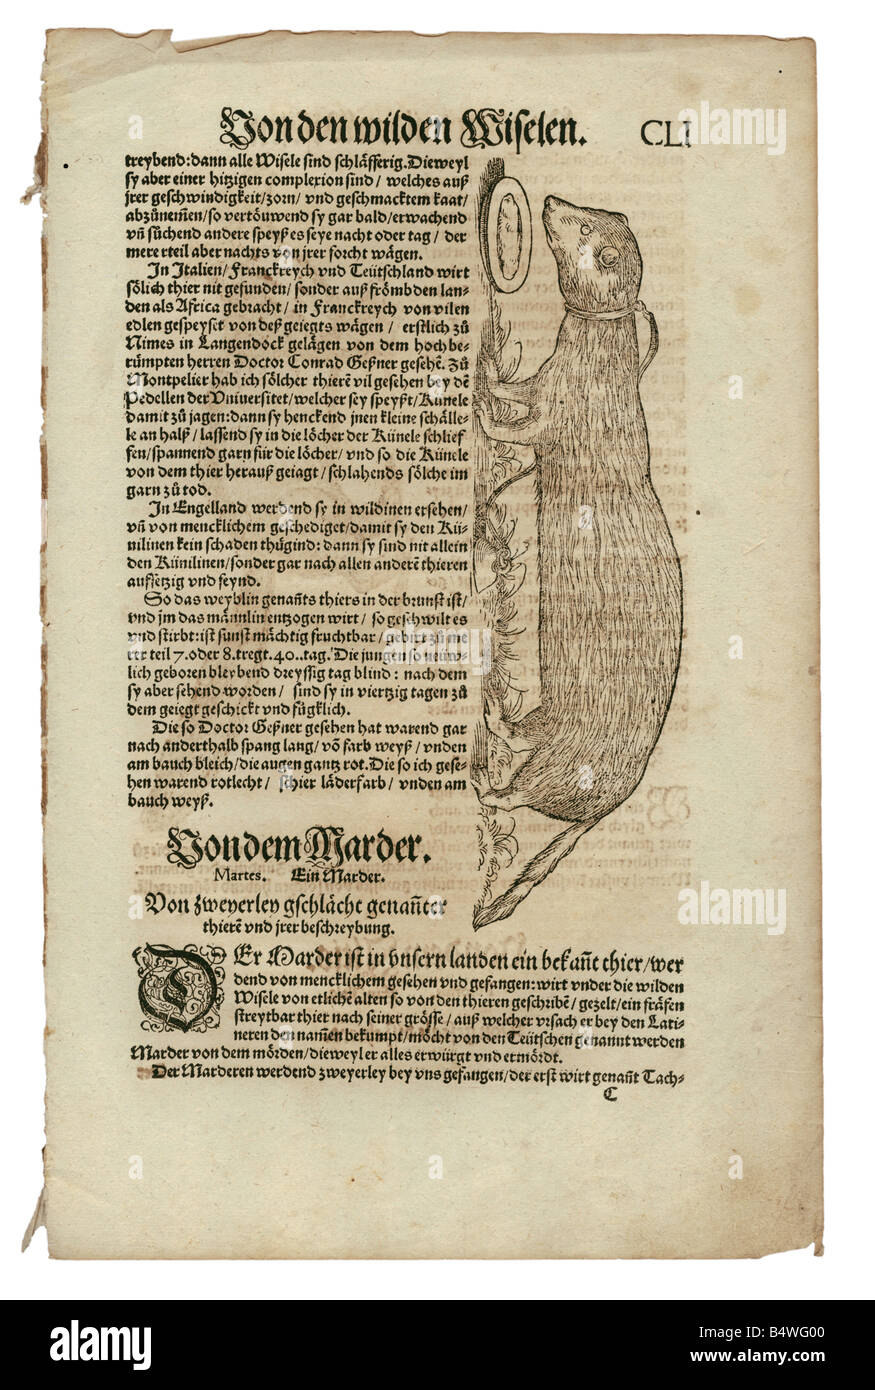 Von den wilden Wiselen. CLI
treybend: dann alle Wisele sind schläfferig. Dieweyl
sy aber einer hitzigen complexion sind / welches auß
jrer geschwindigkeit / zorn / vnd geschmacktem kaat /
abzůnem̃en / so vertöuwend sy gar bald / erwachend
vñ sůchend andere speyß es seye nacht oder tag / der
mere rteil aber nachts von jrer forcht wägen.
In Italien / Franckreych vnd Teütschland wirt
sölich thier nit gefunden / sonder auß frömbden lan-
den als Africa gebracht / in Franckreych von vilen
edlen gespeyset von deß geiegts wägen / erstlich zů
Nimes in Langendock gelägen von dem hochbe-
rümpten herren Doctor Conrad Geßner gesehẽ. Zů
Montpelier hab ich sölcher thierẽ vil gesehen bey dẽ
Pedellen der Vniuersitet / welcher sey speyßt / Künele
damit zů jagen: dann sy henckend jnen kleine schälle-
le an halß / lassend sy in die löcher der Künele schlief
fen / spannend garn für die löcher / vnd so die Künele
von dem thier herauß geiagt / schlahends sölche im
garn zů tod.
In Engelland werdend sy in wildinen ersehen /
vñ von mencklichem geschediget / damit sy den Kü-
nilinen kein schaden thügind: dann sy sind nit allein
den Künilinen / sonder gar nach allen anderẽ thieren
auffsetzig vnd feynd.
So das weyblin genañts thiers in der brunst ist /
vnd jm das mãnnlin entzogen wirt / so geschwilt es
vnd stirbt: ist sunst mächtig fruchtbar / gebirt zů me
rer teil 7. oder 8. tregt. 40. tag. Die jungen so neüw-
lich geboren bleybend dreyssig tag blind: nach dem
sy aber sehend worden / sind sy in viertzig tagen zů
dem geiegt geschickt vnd fügklich.
Die so Doctor Geßner gesehen hat warend gar
nach anderthalb spang lang / võ farb weyß / vnden
am bauch bleich / die augen gantz rot. Die so ich gese-
hen warend rotlecht / schier läderfarb / vnden am
bauch weyß.
Von dem Marder.
Martes. Ein Marder.
Von zweyerley gschlächt genañter
thierẽ vnd jrer beschreybung.
DEr Marder ist in vnsern landen ein bekañt thier / wer
dend von mencklichem gesehen vnd gefangen: wirt vnder die wilden
Wisele von etlichẽ alten so von den thieren geschribẽ / gezelt / ein fräfen
streytbar thier nach seiner grösse / auß welcher vrsach er bey den Lati-
neren den nam̃en bekumpt / möcht von den Teütschen genannt werden
Marder von dem mörden / dieweyl er alles erwürgt vnd ermördt.
Der Marderen werdend zweyerley bey vns gefangen / der erst wirt genañt Tach-
C
alamy
alamy
alamy
Image ID: B4WG00
www.alamy.com